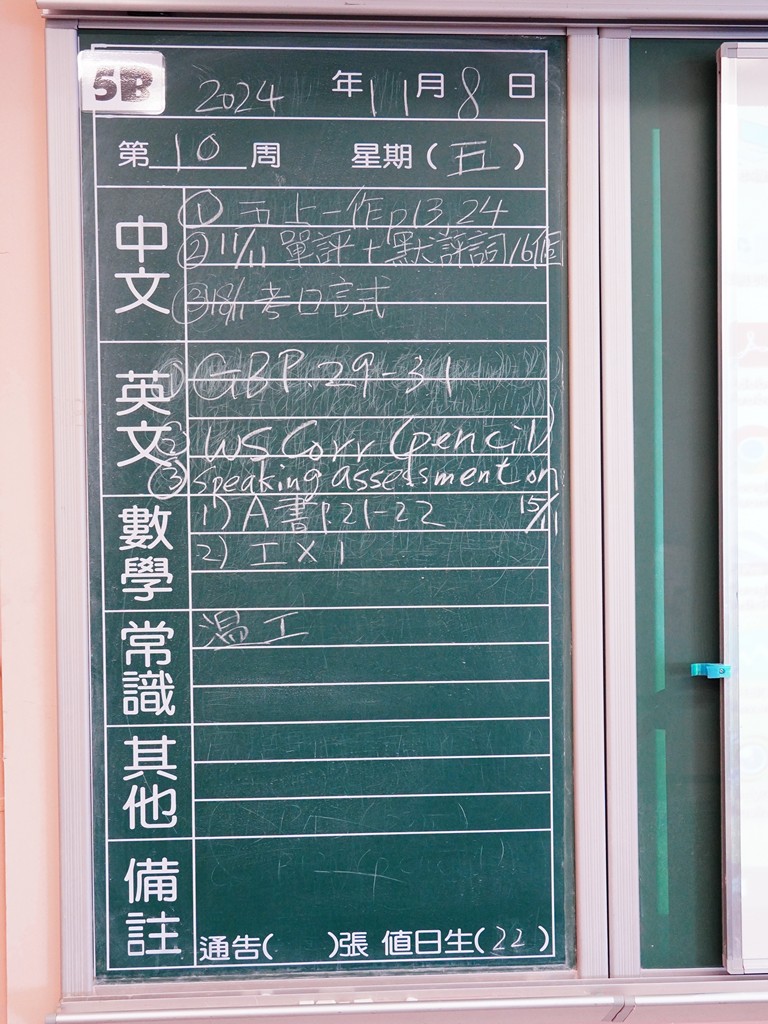 5B
2024 年 11 月 8 日
第 10 周 星期 (五)
中文
① 五上一作 p13, 24
② 11/11 單評 + 默評詞 16個
③ 18/11 考口試
英文
① GB P.29-31
② WS Corr (pencil)
③ Speaking assessment on 15/11
數學
1) A書 P.21-22
2) 工 X 1
常識
溫工
其他
備註
通告( )張 值日生(22)